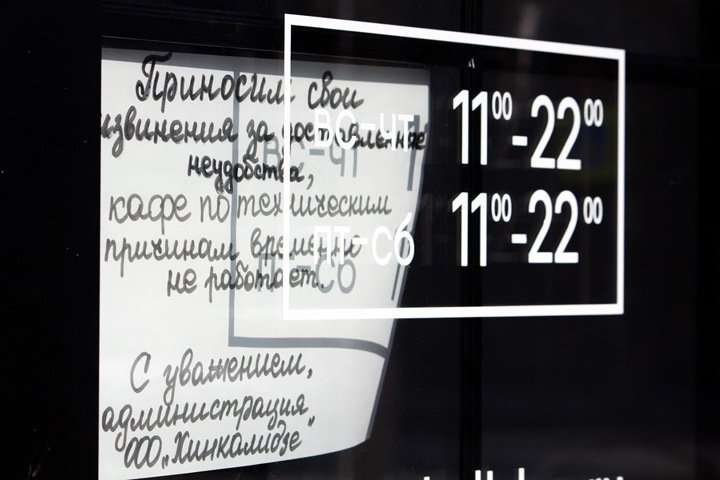 Приносим свои
извинения за доставленные
неудобства,
кафе по техническим
причинам временно
не работает.
С уважением,
администрация
ООО „Хинкалидзе"
вс-чт 11⁰⁰-22⁰⁰
пт-сб 11⁰⁰-22⁰⁰